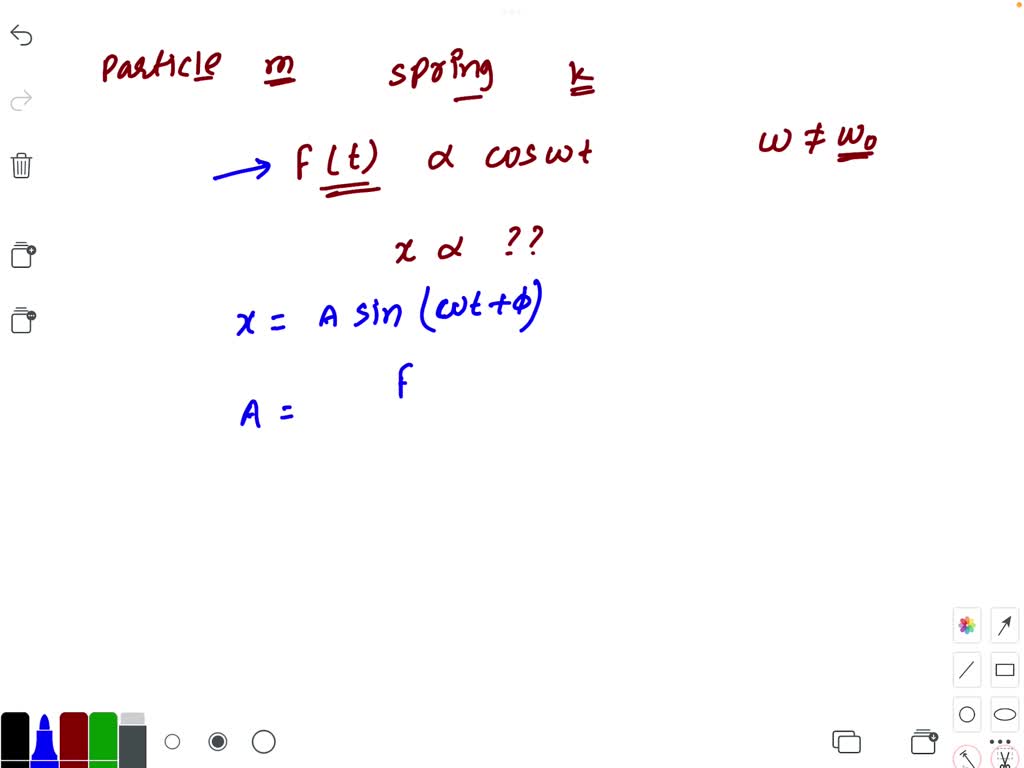 Particle m spring k
F(t) ∝ cos ωt ω ≠ ω₀
x ∝ ??
x = A sin (ωt + ϕ)
F
A =